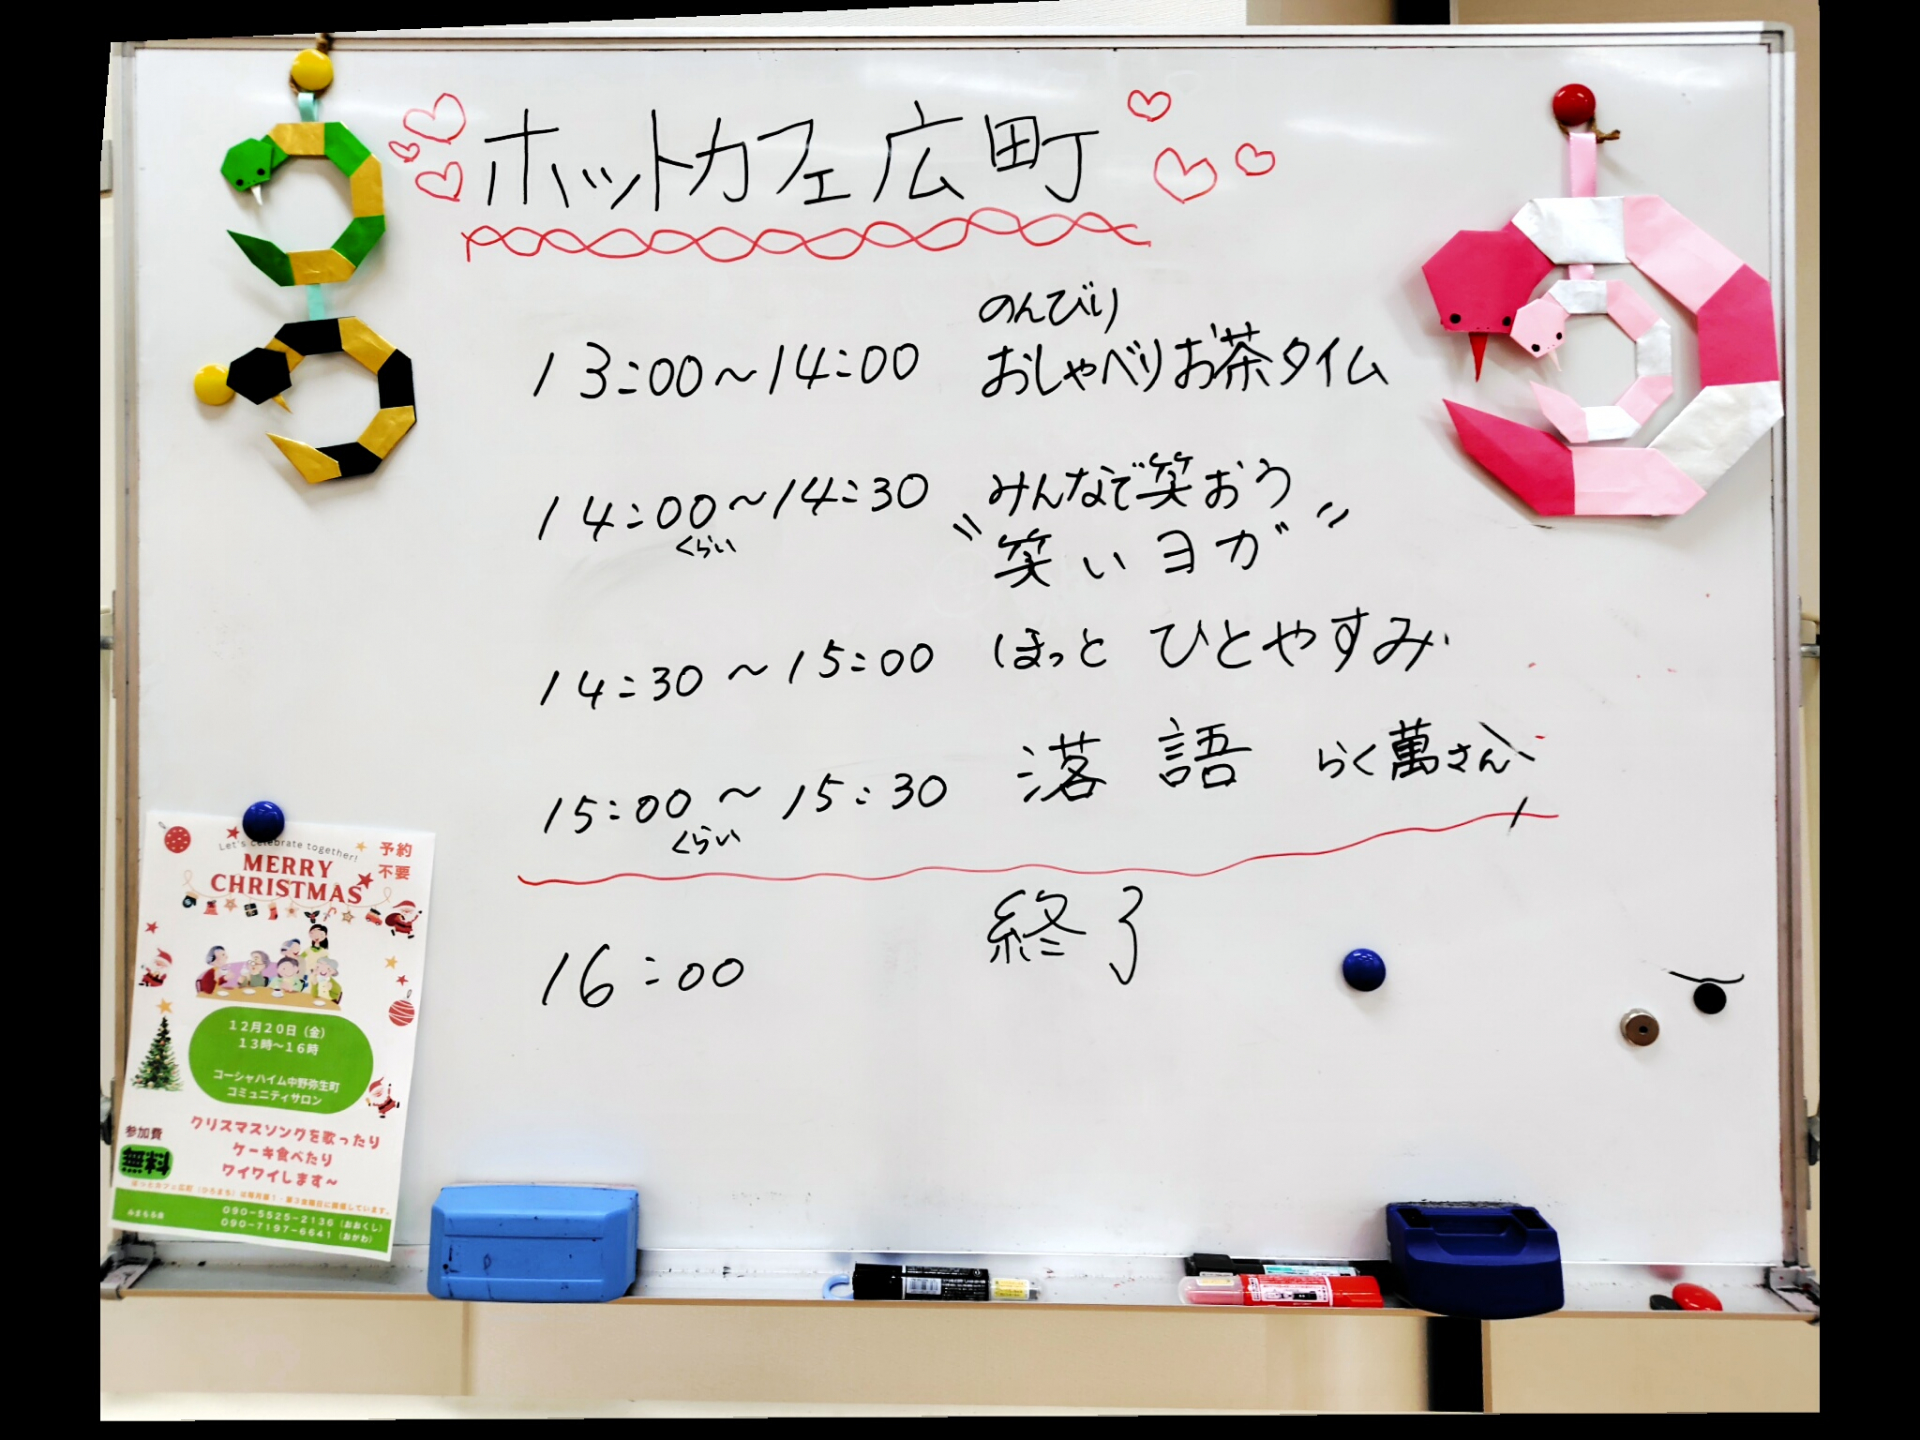 ホットカフェ広町
のんびり
13:00～14:00 おしゃべりお茶タイム
14:00～14:30 みんなで笑おう
くらい
"笑いヨガ"
14:30～15:00 ほっと ひとやすみ
15:00～15:30 落語 らく萬さん
くらい
16:00 終了
Let's celebrate together!
予約
不要
MERRY
CHRISTMAS
12月20日（金）
13時～16時
コーシャハイム中野弥生町
コミュニティサロン
クリスマスソングを歌ったり
ケーキ食べたり
ワイワイします～
参加費
無料
ほっとカフェ広町（ひろまち）は毎月第1・第3金曜日に開催しています。
みまもる会
090-5525-2136（おおくし）
090-7197-6641（おがわ）